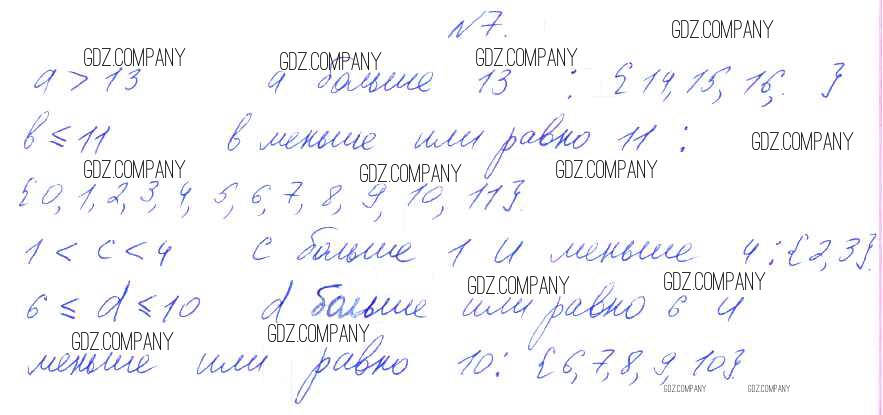 №7.
GDZ.COMPANY
GDZ.COMPANY GDZ.COMPANY GDZ.COMPANY
a > 13 a больше 13 : {14, 15, 16, . }
в ≤ 11 в меньше или равно 11 :
GDZ.COMPANY
GDZ.COMPANY GDZ.COMPANY GDZ.COMPANY
{0, 1, 2, 3, 4, 5, 6, 7, 8, 9, 10, 11}.
1 < c < 4 c больше 1 и меньше 4 : {2, 3}.
GDZ.COMPANY GDZ.COMPANY
6 ≤ d ≤ 10 d больше или равно 6 и
GDZ.COMPANY GDZ.COMPANY
меньше или равно 10 : {6, 7, 8, 9, 10}.
GDZ.COMPANY GDZ.COMPANY